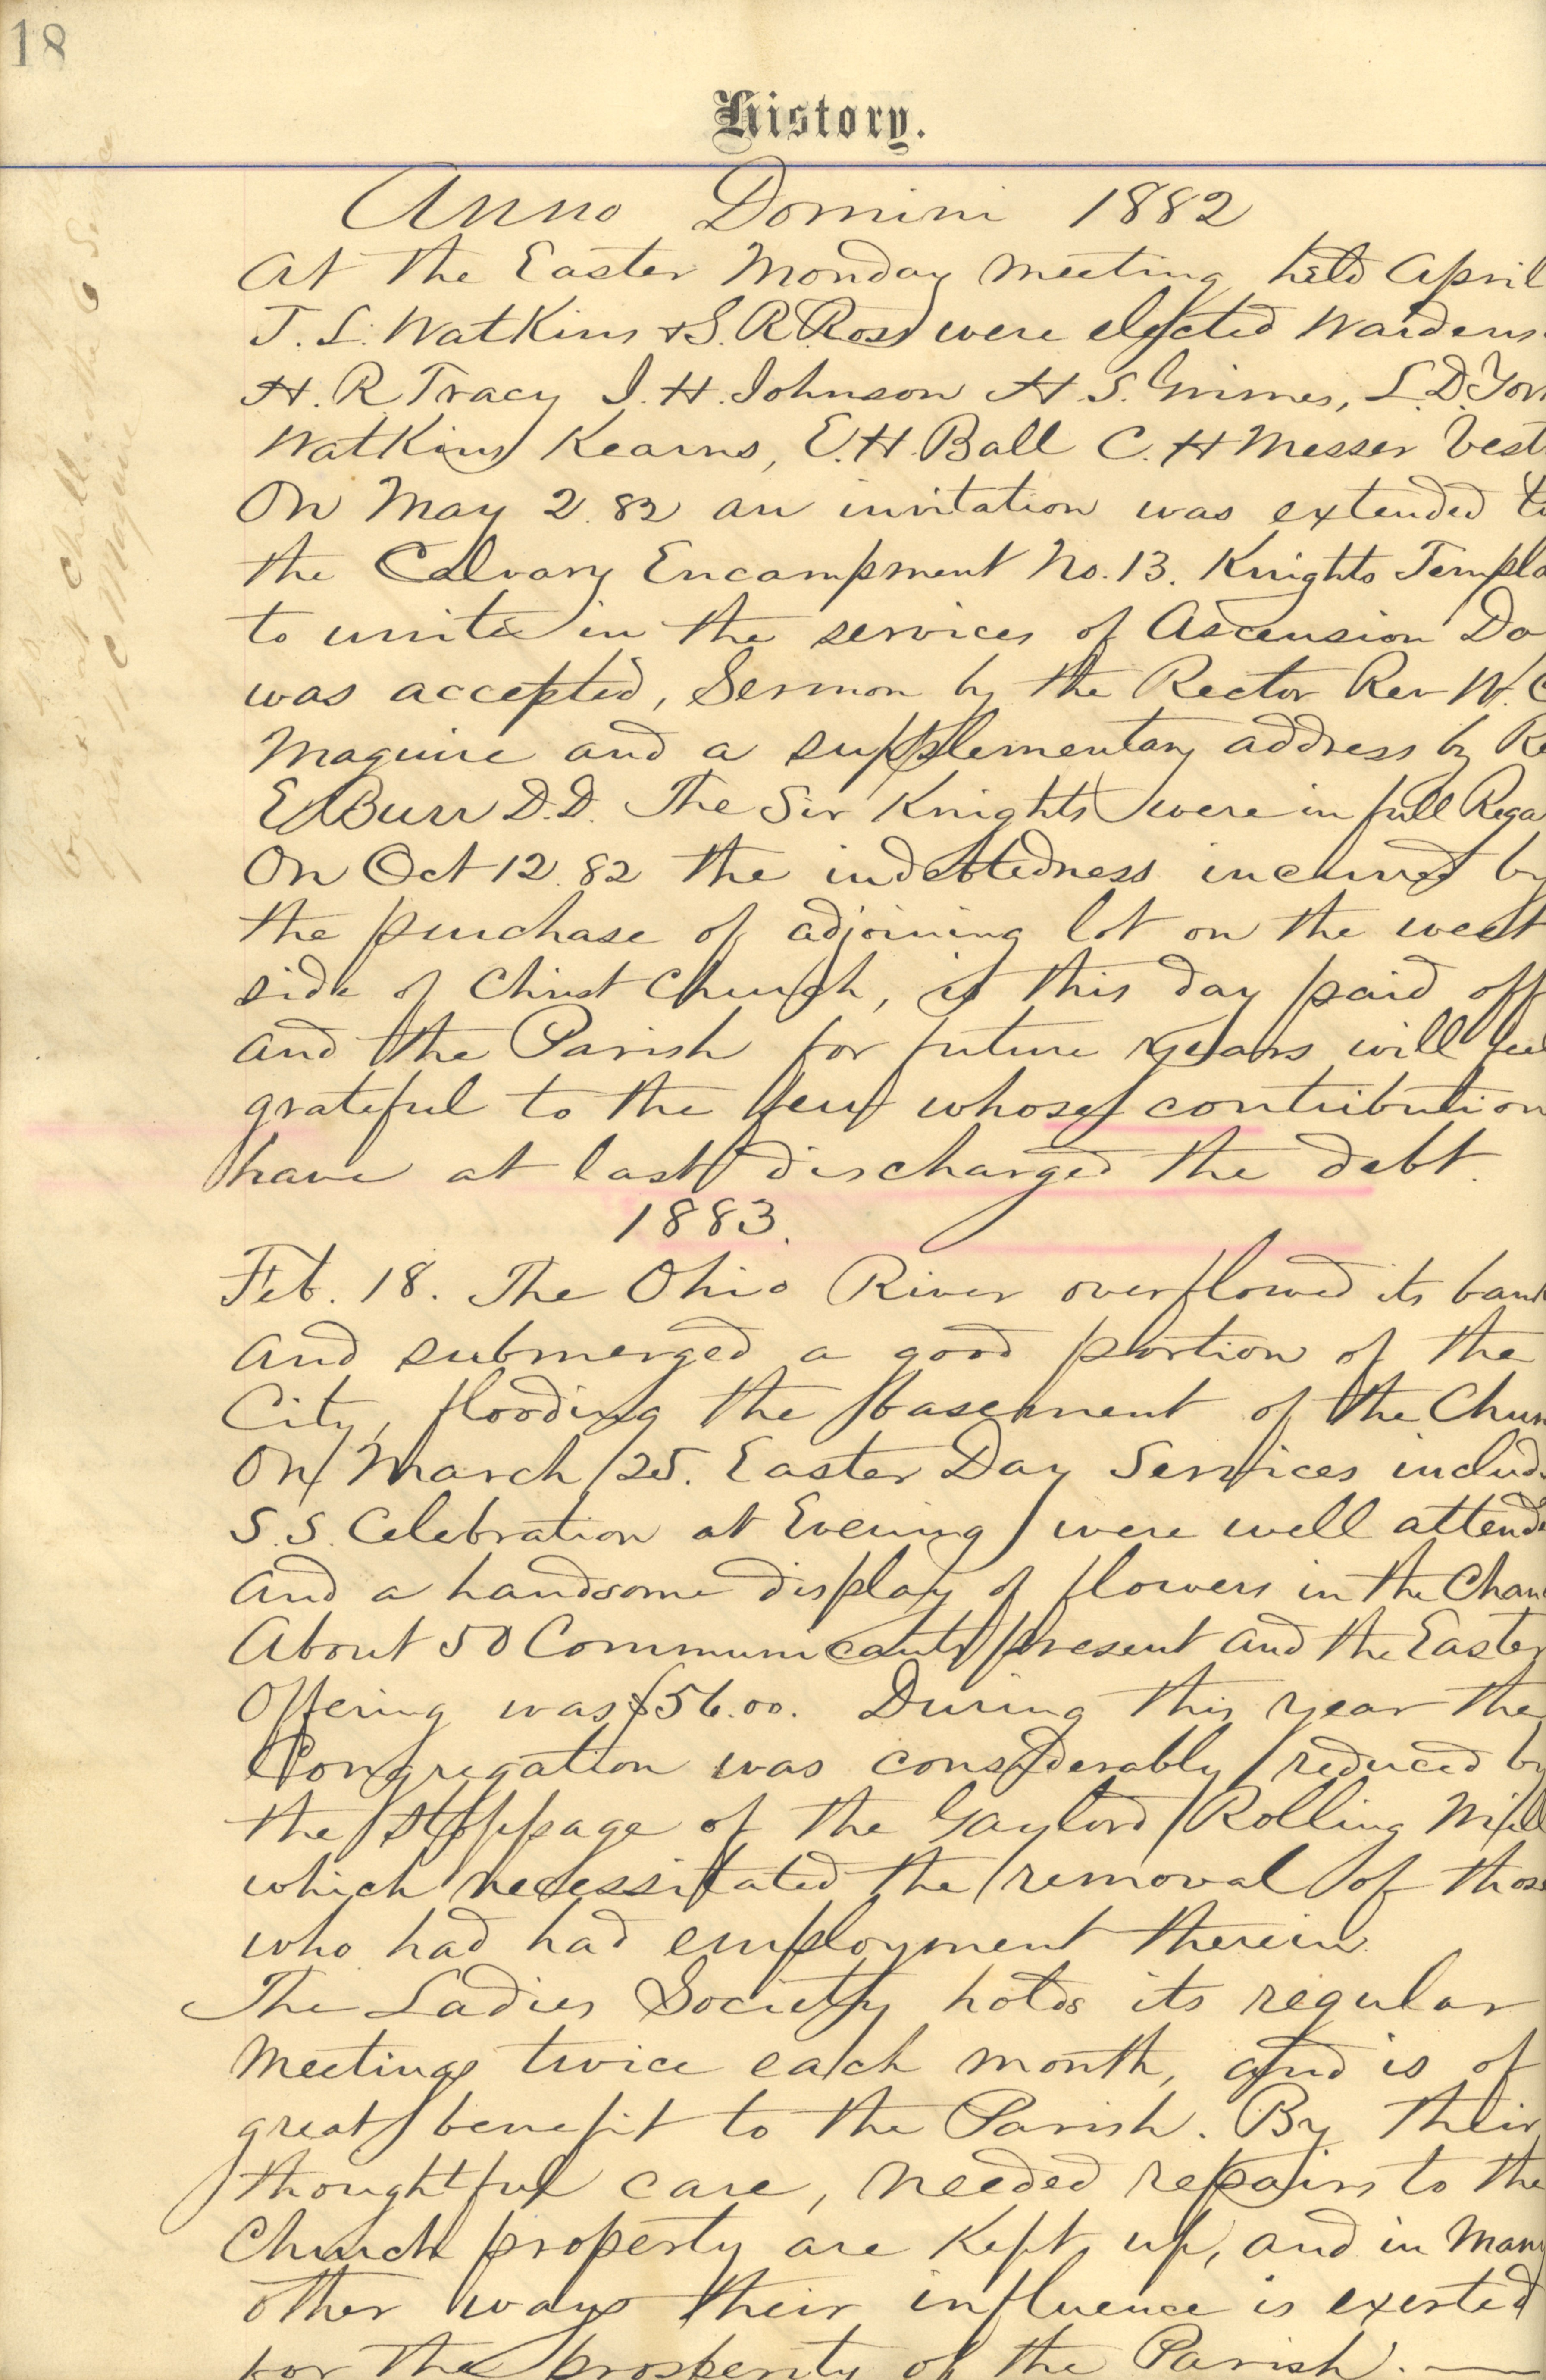 18
History.
Anno Domini 1882
At the Easter Monday meeting held April
T. L. Watkins & S. R. Ross were elected Wardens.
H. R. Tracy J. H. Johnson H. S. Grimes, L. D. York
Watkins Kearns, E. H. Ball C. H Messer Vest
On May 2. 82 an invitation was extended to
the Calvary Encampment No. 13. Knights Templa
to unite in the services of Ascension Da
was accepted, Sermon by the Rector Rev W. C
Maguire and a supplementary address by Re
E Burr D.D. The Sir Knights were in full Rega
On Oct 12. 82 the indebtedness incurred by
the purchase of adjoining lot on the west
side of Christ Church, is this day paid off
and the Parish for future years will feel
grateful to the few whose contribution
have at last discharged the debt.
1883.
Feb. 18. The Ohio River overflowed its bank
and submerged a good portion of the
City, flooding the basement of the Chur
On March 25. Easter Day Services includ
S. S. Celebration at Evening were well attend
and a handsome display of flowers in the Chan
About 50 Communicants present and the Easter
Offering was $56.00. During this year the
Congregation was considerably reduced by
the stoppage of the Gaylord Rolling Mill
which necessitated the removal of thos
who had had employment therein.
The Ladies Society holds its regular
Meetings twice each month, and is of
great benefit to the Parish. By their
thoughtful care, needed repairs to the
Church property are kept up, and in Many
other ways their influence is exerted
for the prosperity of the Parish. —